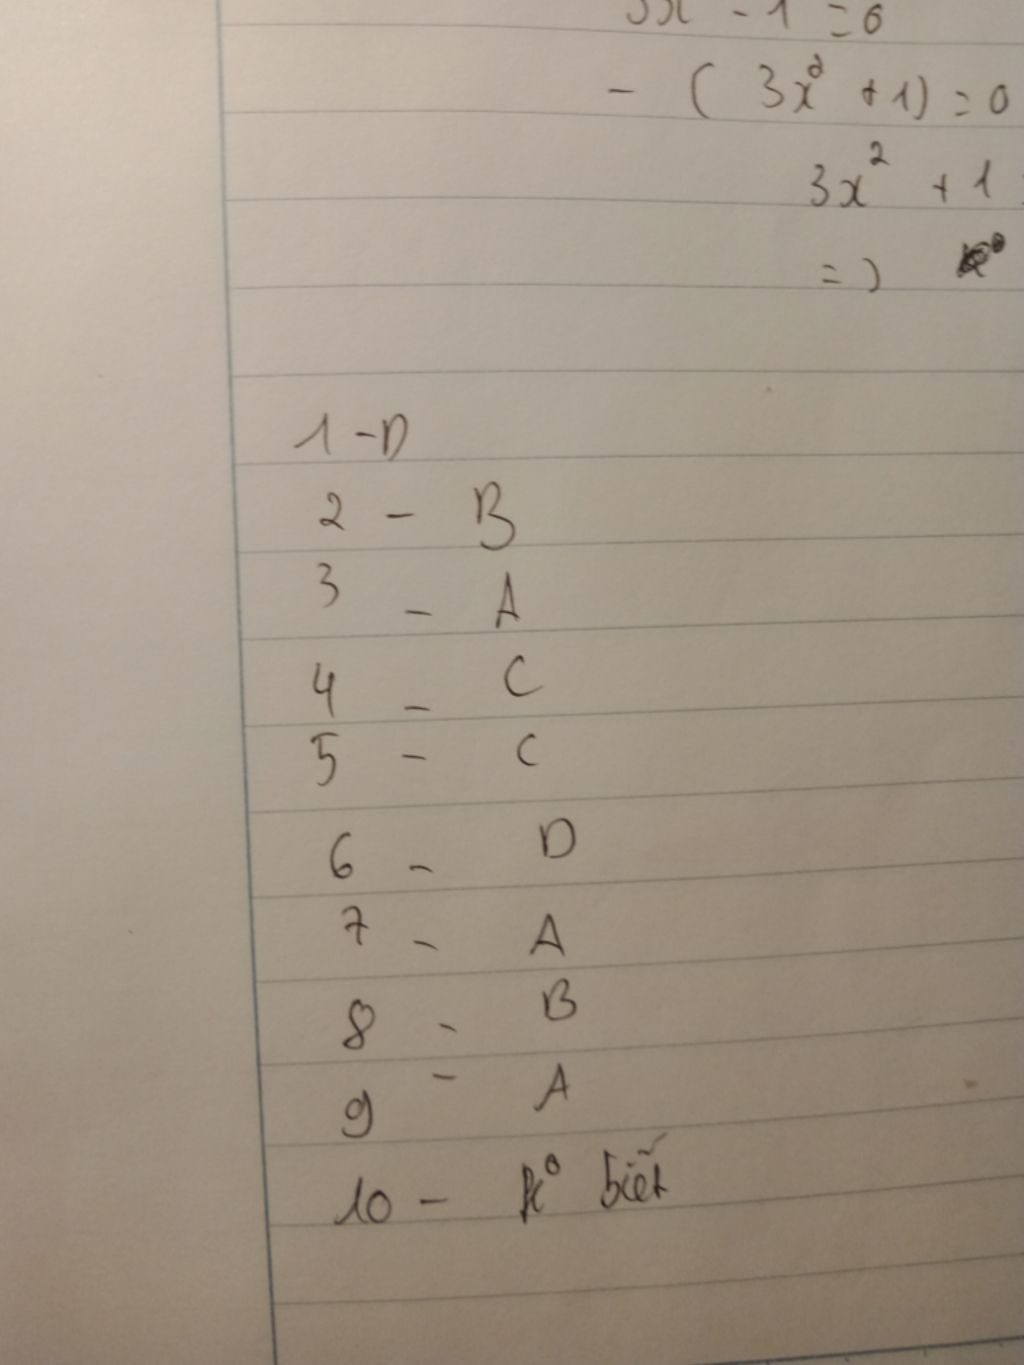 - 1 = 0
- ( 3x² + 1) = 0
3x² + 1
=)
1 - D
2 - B
3 - A
4 - C
5 - C
6 - D
7 - A
8 - B
9 - A
10 - k° biết